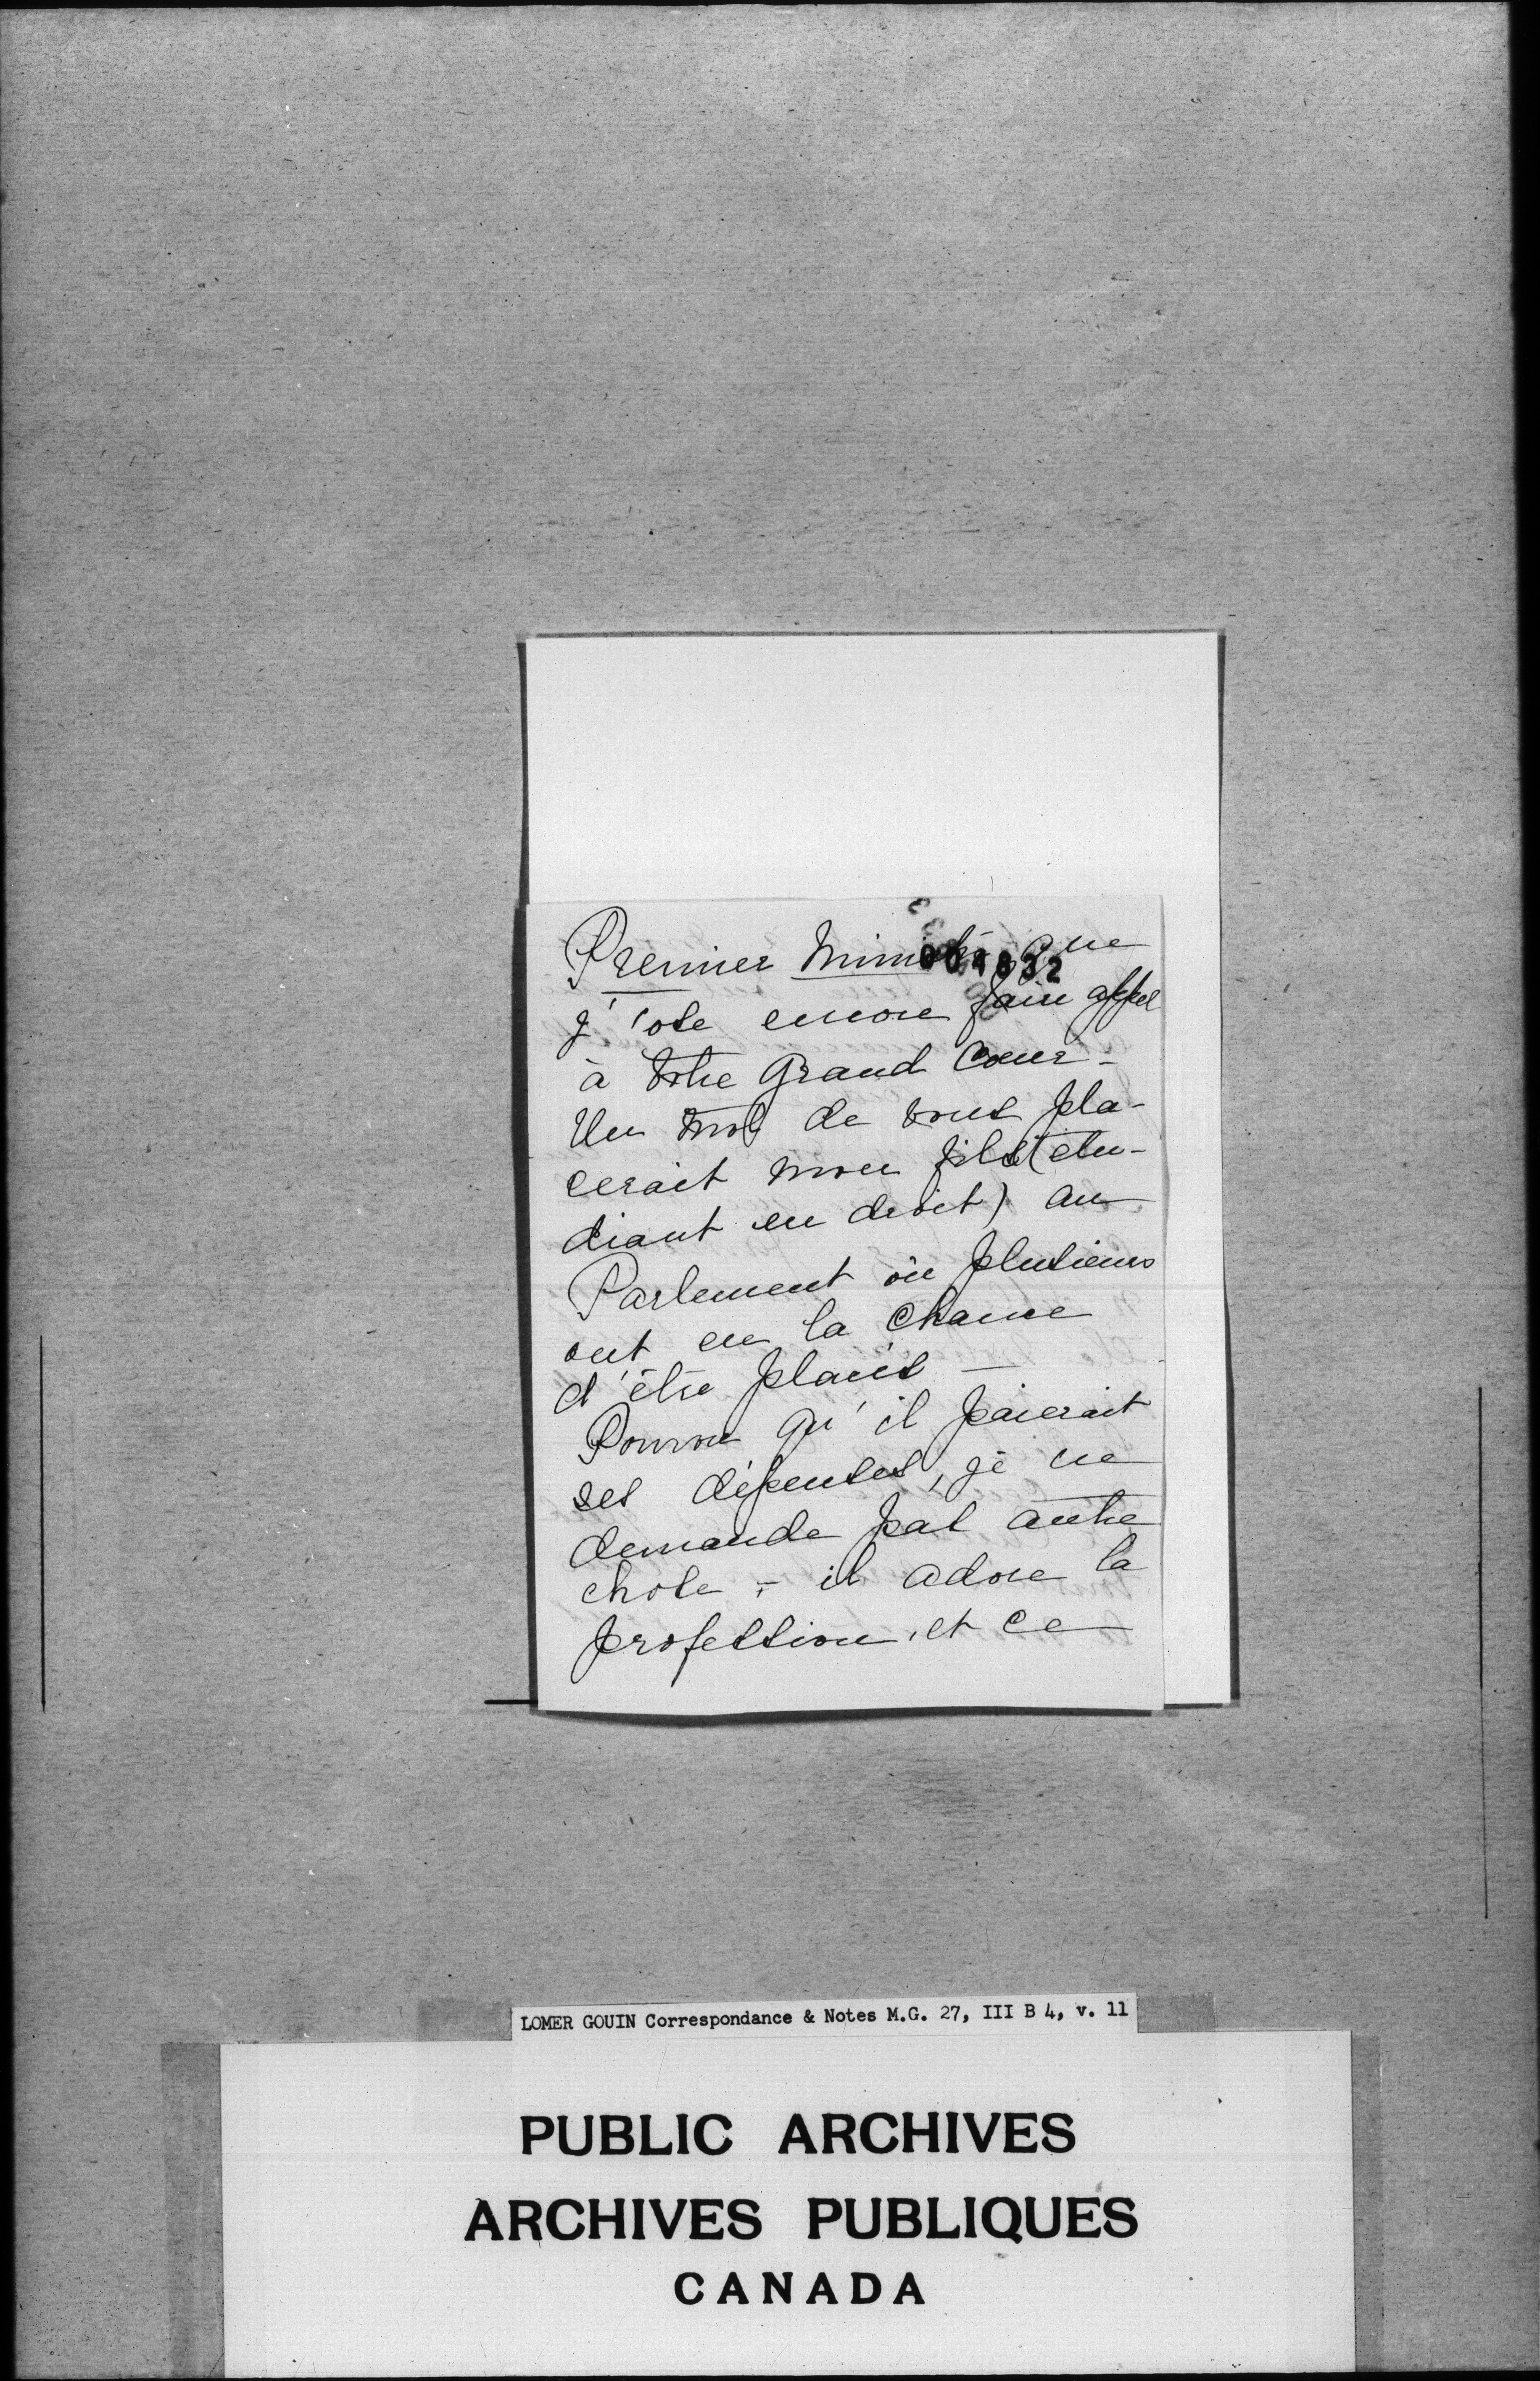 Premier Ministre que
004832
j'ose encore faire appel
à votre grand cœur -
Un mot de vous pla-
cerait mon fils (étu-
diant en droit) au
Parlement où plusieurs
ont eu la chance
d'être placés -
Pourvu qu'il paierait
ses dépenses, je ne
demande pas autre
chose ; - il adore la
profession, et ce
LOMER GOUIN Correspondance & Notes M.G. 27, III B 4, v. 11
PUBLIC ARCHIVES
ARCHIVES PUBLIQUES
CANADA